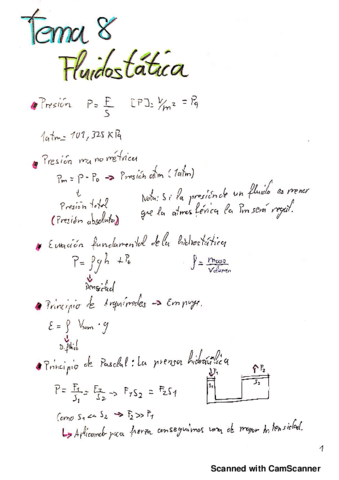 Tema 8
Fluidostática
Presión P = F/S [P] = N/m² = Pa
1 atm = 101,325 KPa
Presión manométrica
Pm = P - P0 → Presión atm (1 atm)
Presión total
(Presión absoluta)
Nota: Si la presión de un fluido es menor
que la atmosférica la Pm será negat.
Ecuación fundamental de la hidrostática
P = ρgh + P0 ρ = masa/volumen
Densidad
Principio de Arquímedes → Empuje.
E = ρ Vsum · g
Principio de Pascal: La prensa hidráulica
P = F1/S1 = F2/S2 → F1S2 = F2S1
F1 F2
S1 S2
Como S1 << S2 → F2 >> F1
↳ Aplicando poca fuerza conseguimos una de mayor intensidad.
1
Scanned with CamScanner